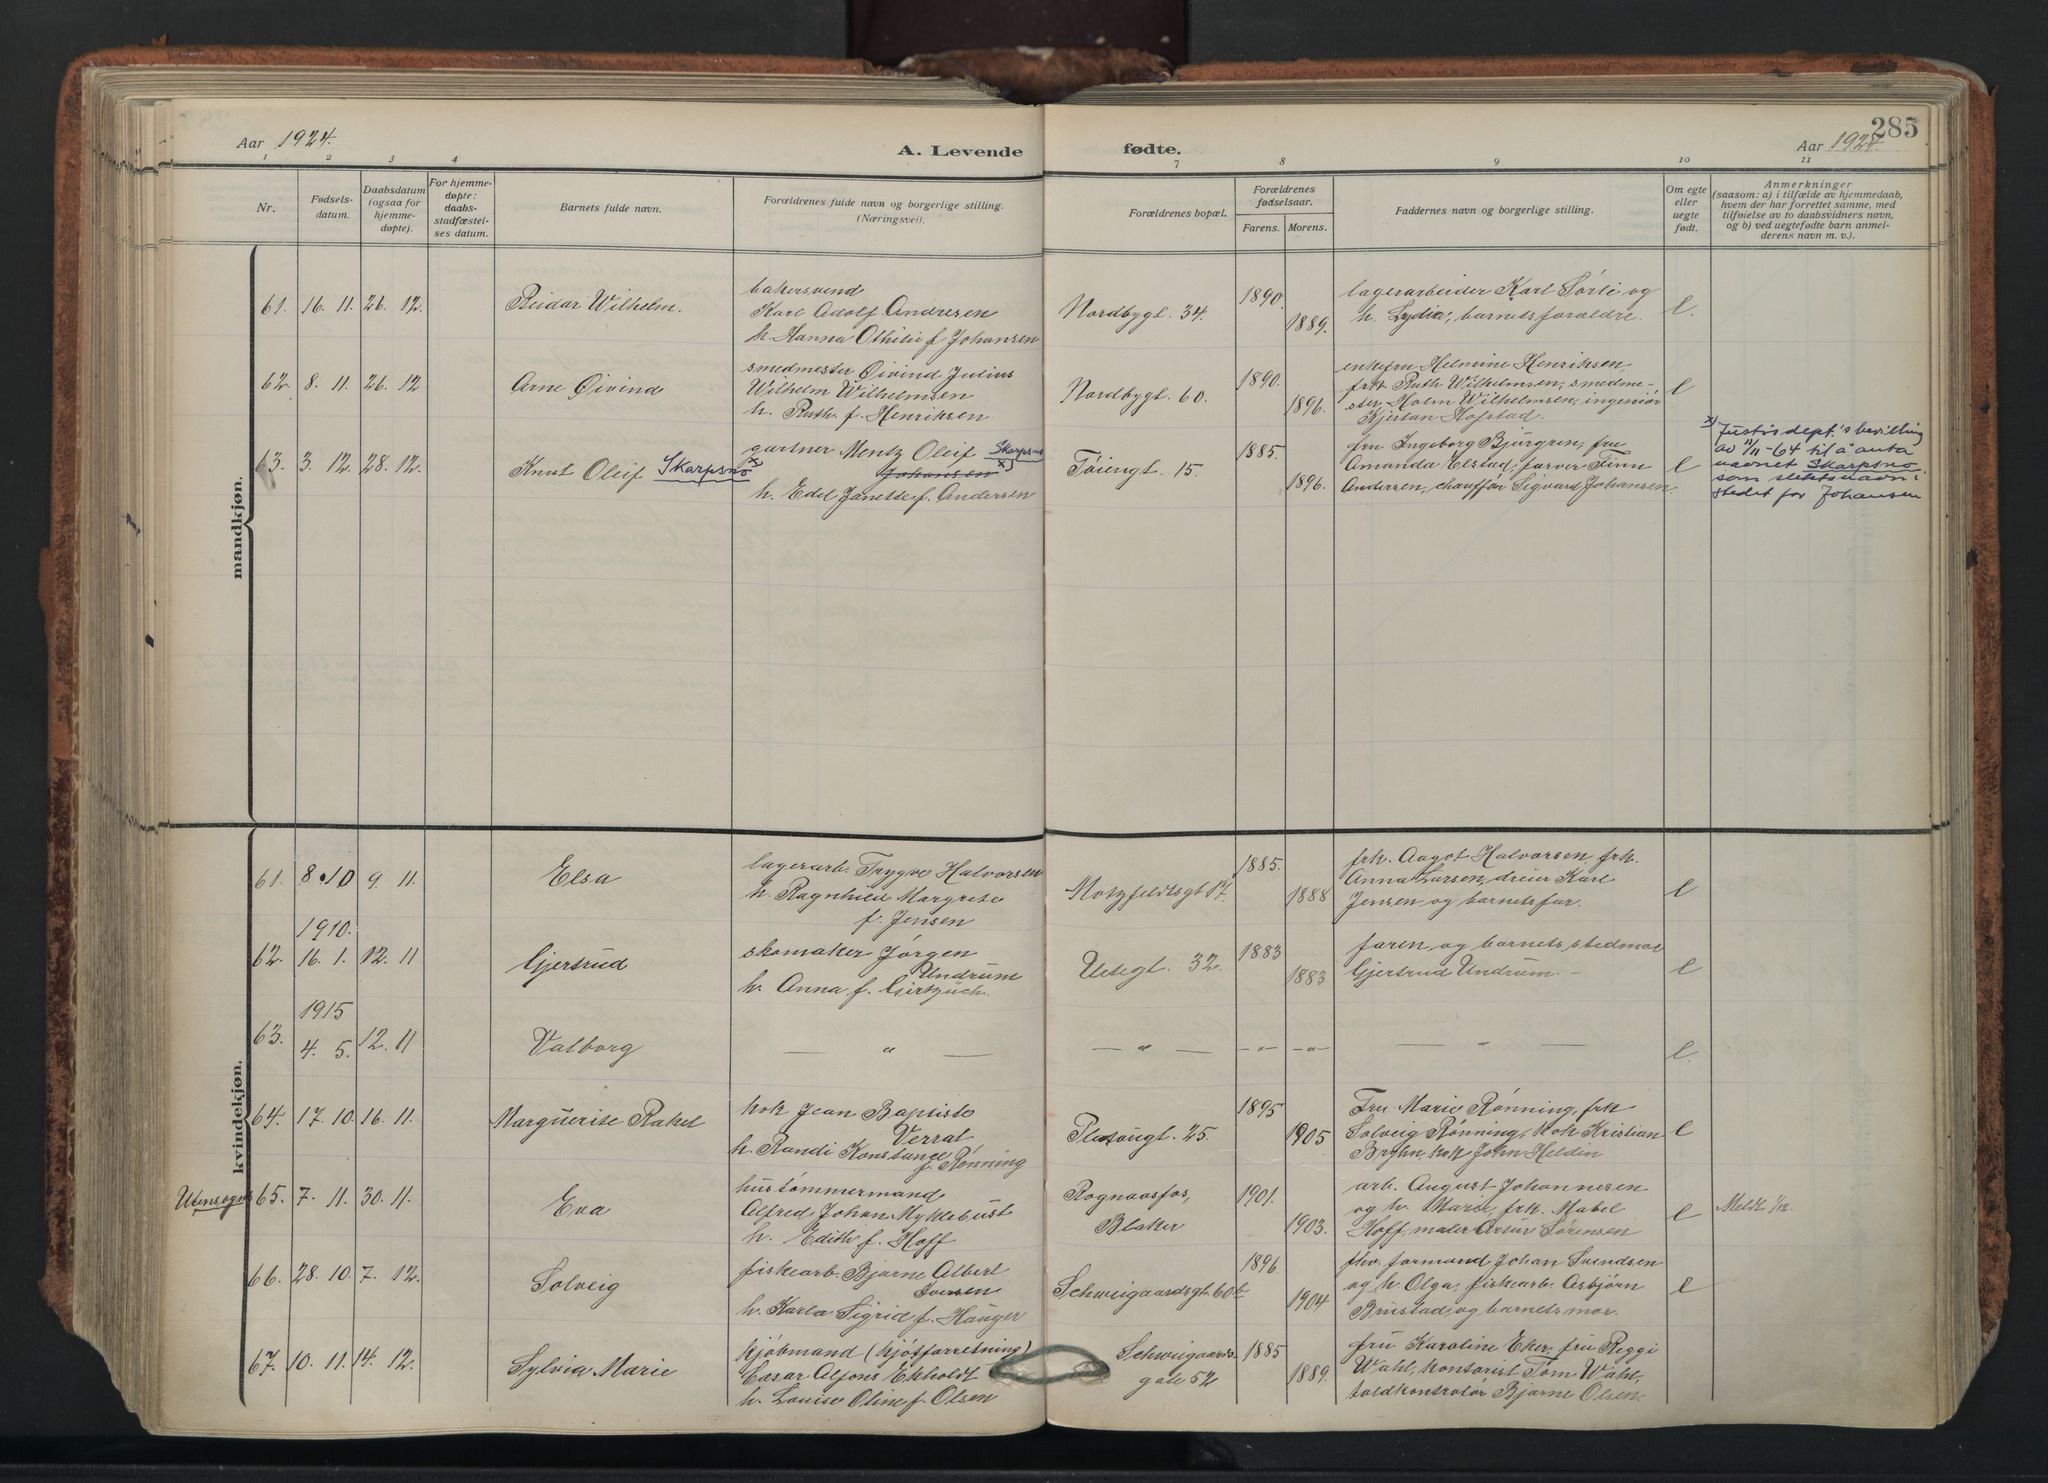 285
Aar 1924. A. Levende fødte. Aar 1924.
1 2 3 4 7 8 9 10 11
Nr.
Fødsels-
datum.
Daabsdatum
(ogsaa for
hjemme-
døpte).
For hjemme-
døpte:
daabs-
stadfæstel-
ses datum.
Barnets fulde navn.
Forældrenes fulde navn og borgerlige stilling.
(Næringsvei).
Forældrenes bopæl.
Forældrenes
fødselsaar.
Farens. Morens.
Faddernes navn og borgerlige stilling.
Om egte
eller
uegte
født.
Anmerkninger
(saasom: a) i tilfælde av hjemmedaab,
hvem der har forrettet samme, med
tilføielse av to daabsvidners navn,
og b) ved uegtefødte barn anmel-
derens navn m. v.).
mandkjøn.
61. 16. 11. 26. 12. Reidar Wilhelm.
bakersvend
Karl Adolf Andresen
h. Hanna Othilie f Johansen
Nordbygt. 34. 1890. 1889.
lagerarbeider Karl Sørli og
h. Lydia, barnets foraldre. e.
62. 8. 11. 26. 12 Arne Øivind
smedmester Øivind Julius
Wilhelm Wilhelmsen
h. Ruth f. Henriksen
Nordbygt. 60. 1890. 1896.
enkefru Helmine Henriksen
frk. Ruth Wilhelmsen, smedme-
ster Holm Wilhelmsen, ingeniør
Kjertan Hofstad. e
63. 3. 12. 28. 12. Knut Oleif Skarpsno x)
gartner Mentz Oleif Skarpsno
Johansen x)
h. Edel Janette f. Andersen
Tøiengt. 15. 1885. 1896.
fru Ingeborg Bjurgren, fru
Amanda Elstad, farver Finn
Andersen, chauffør Sigvard Johansen. e
x) Justisdept.'s bevilling
av 11/11-64 til å anta
navnet Skarpsno
som slektsnavn i
stedet for Johansen
kvindekjøn.
61. 8. 10 9. 11. Elsa
lagerarb. Trygve Halvorsen
h. Ragnhild Margrete
f. Jensen
Motzfeldtsgt 17. 1885. 1888
frk. Aagot Halvorsen, frk.
Anna Larsen, dreier Karl
Jensen og barnets far. e
1910.
62. 16. 1. 12. 11 Gjertrud
skomaker Jørgen
Undrum
h. Anna f.
Urtegt. 32. 1883 1883
faren og barnets stedmor
Gjertrud Undrum. – e
1915
63. 4. 5. 12. 11 Valborg
— " — — " — –"– –"– — " — e.
64. 17. 10. 16. 11. Marguerite Rakel
kok Jean Baptiste
Verrat,
h. Randi Konstance
f. Rønning
25. 1895 1905
Fru Marie Rønning, frk
Solveig Rønning, kok Kristian
Bryhn, kok John Heldin e
Utensogns 65. 7. 11. 30. 11. Eva
hustømmermand
Alfred Johan Myklebust
h. Edith f. Hoff
Rognaasfos,
Blaker 1901. 1903.
arb. August Johannesen
og h. Marie, frk. Mabel
Hoff, maler Artur Sørensen e
Meldt 1/12.
66. 28. 10. 7. 12. Solveig
fiskearb. Bjarne Albert
Iversen
h. Karla Sigrid f. Hauger
Schweigaardsgt 60b 1896 1904
fhv. formand Johan Svendsen
og h. Olga, fiskearb. Asbjørn
Brustad, og barnets mor. e
67. 10. 11. 14. 12. Sylvia Marie
kjøbmand (kjøtforretning)
Cæsar Alfons Ekholdt
h. Louise Oline f. Olsen
Schweigaards-
gate 52 1885 1889.
fru Karoline Eker, fru Reggi
Wahl, kontorist Tom Wahl,
toldkontrolør Bjarne Olsen.